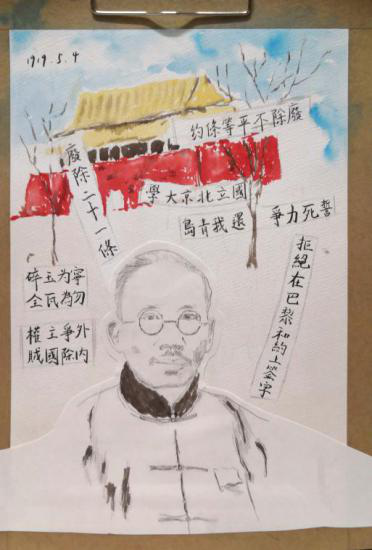 1919.5.4
廢除不平等條約
廢除二十一條
國立北京大學
還我青島
誓死力爭
拒絕在巴黎和約上簽字
寧为玉碎
勿為瓦全
外爭主權
內除國賊